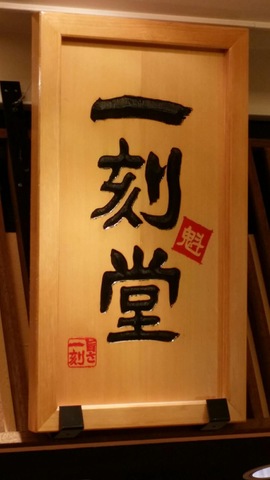 一刻堂
魁
旨さ
一刻